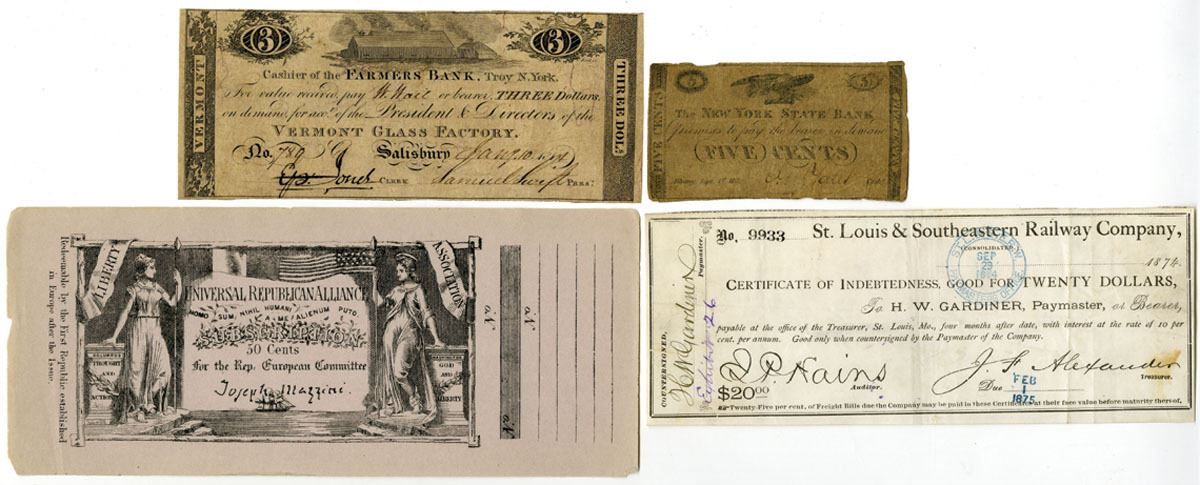 VERMONT
3
3
THREE DOL.
Cashier of the FARMERS BANK, Troy N. York.
For value received, pay W. Hail or bearer, THREE Dollars,
on demand, for acct. of the President & Directors of the
VERMONT GLASS FACTORY.
No. 789 Salisbury
Clerk Samuel Swift Prest.
FIVE CENTS
5
The NEW YORK STATE BANK
promises to pay the bearer on demand
(FIVE) CENTS
Redeemable by the First Republic established
in Europe after the Issue.
LIBERTY
ASSOCIATION
UNIVERSAL REPUBLICAN ALLIANCE
HOMO SUM, NIHIL HUMANI A ME ALIENUM PUTO.
SUBSCRIPTION
50 Cents
For the Rep. European Committee
Joseph Mazzini.
THOUGHT
AND
ACTION
GOD
AND
LIBERTY
No. 9933 St. Louis & Southeastern Railway Company,
(CONSOLIDATED)
1874.
SEP
28
1874
CERTIFICATE OF INDEBTEDNESS, GOOD FOR TWENTY DOLLARS,
To H. W. GARDINER, Paymaster, or Bearer,
payable at the office of the Treasurer, St. Louis, Mo., four months after date, with interest at the rate of 10 per
cent. per annum. Good only when countersigned by the Paymaster of the Company.
COUNTERSIGNED,
H W Gardiner
Paymaster.
Exhibit 26
Auditor.
J. F. Alexander
Treasurer.
$20.00
Due FEB
1
1875
Twenty-Five per cent. of Freight Bills due the Company may be paid in these Certificates at their face value before maturity thereof.